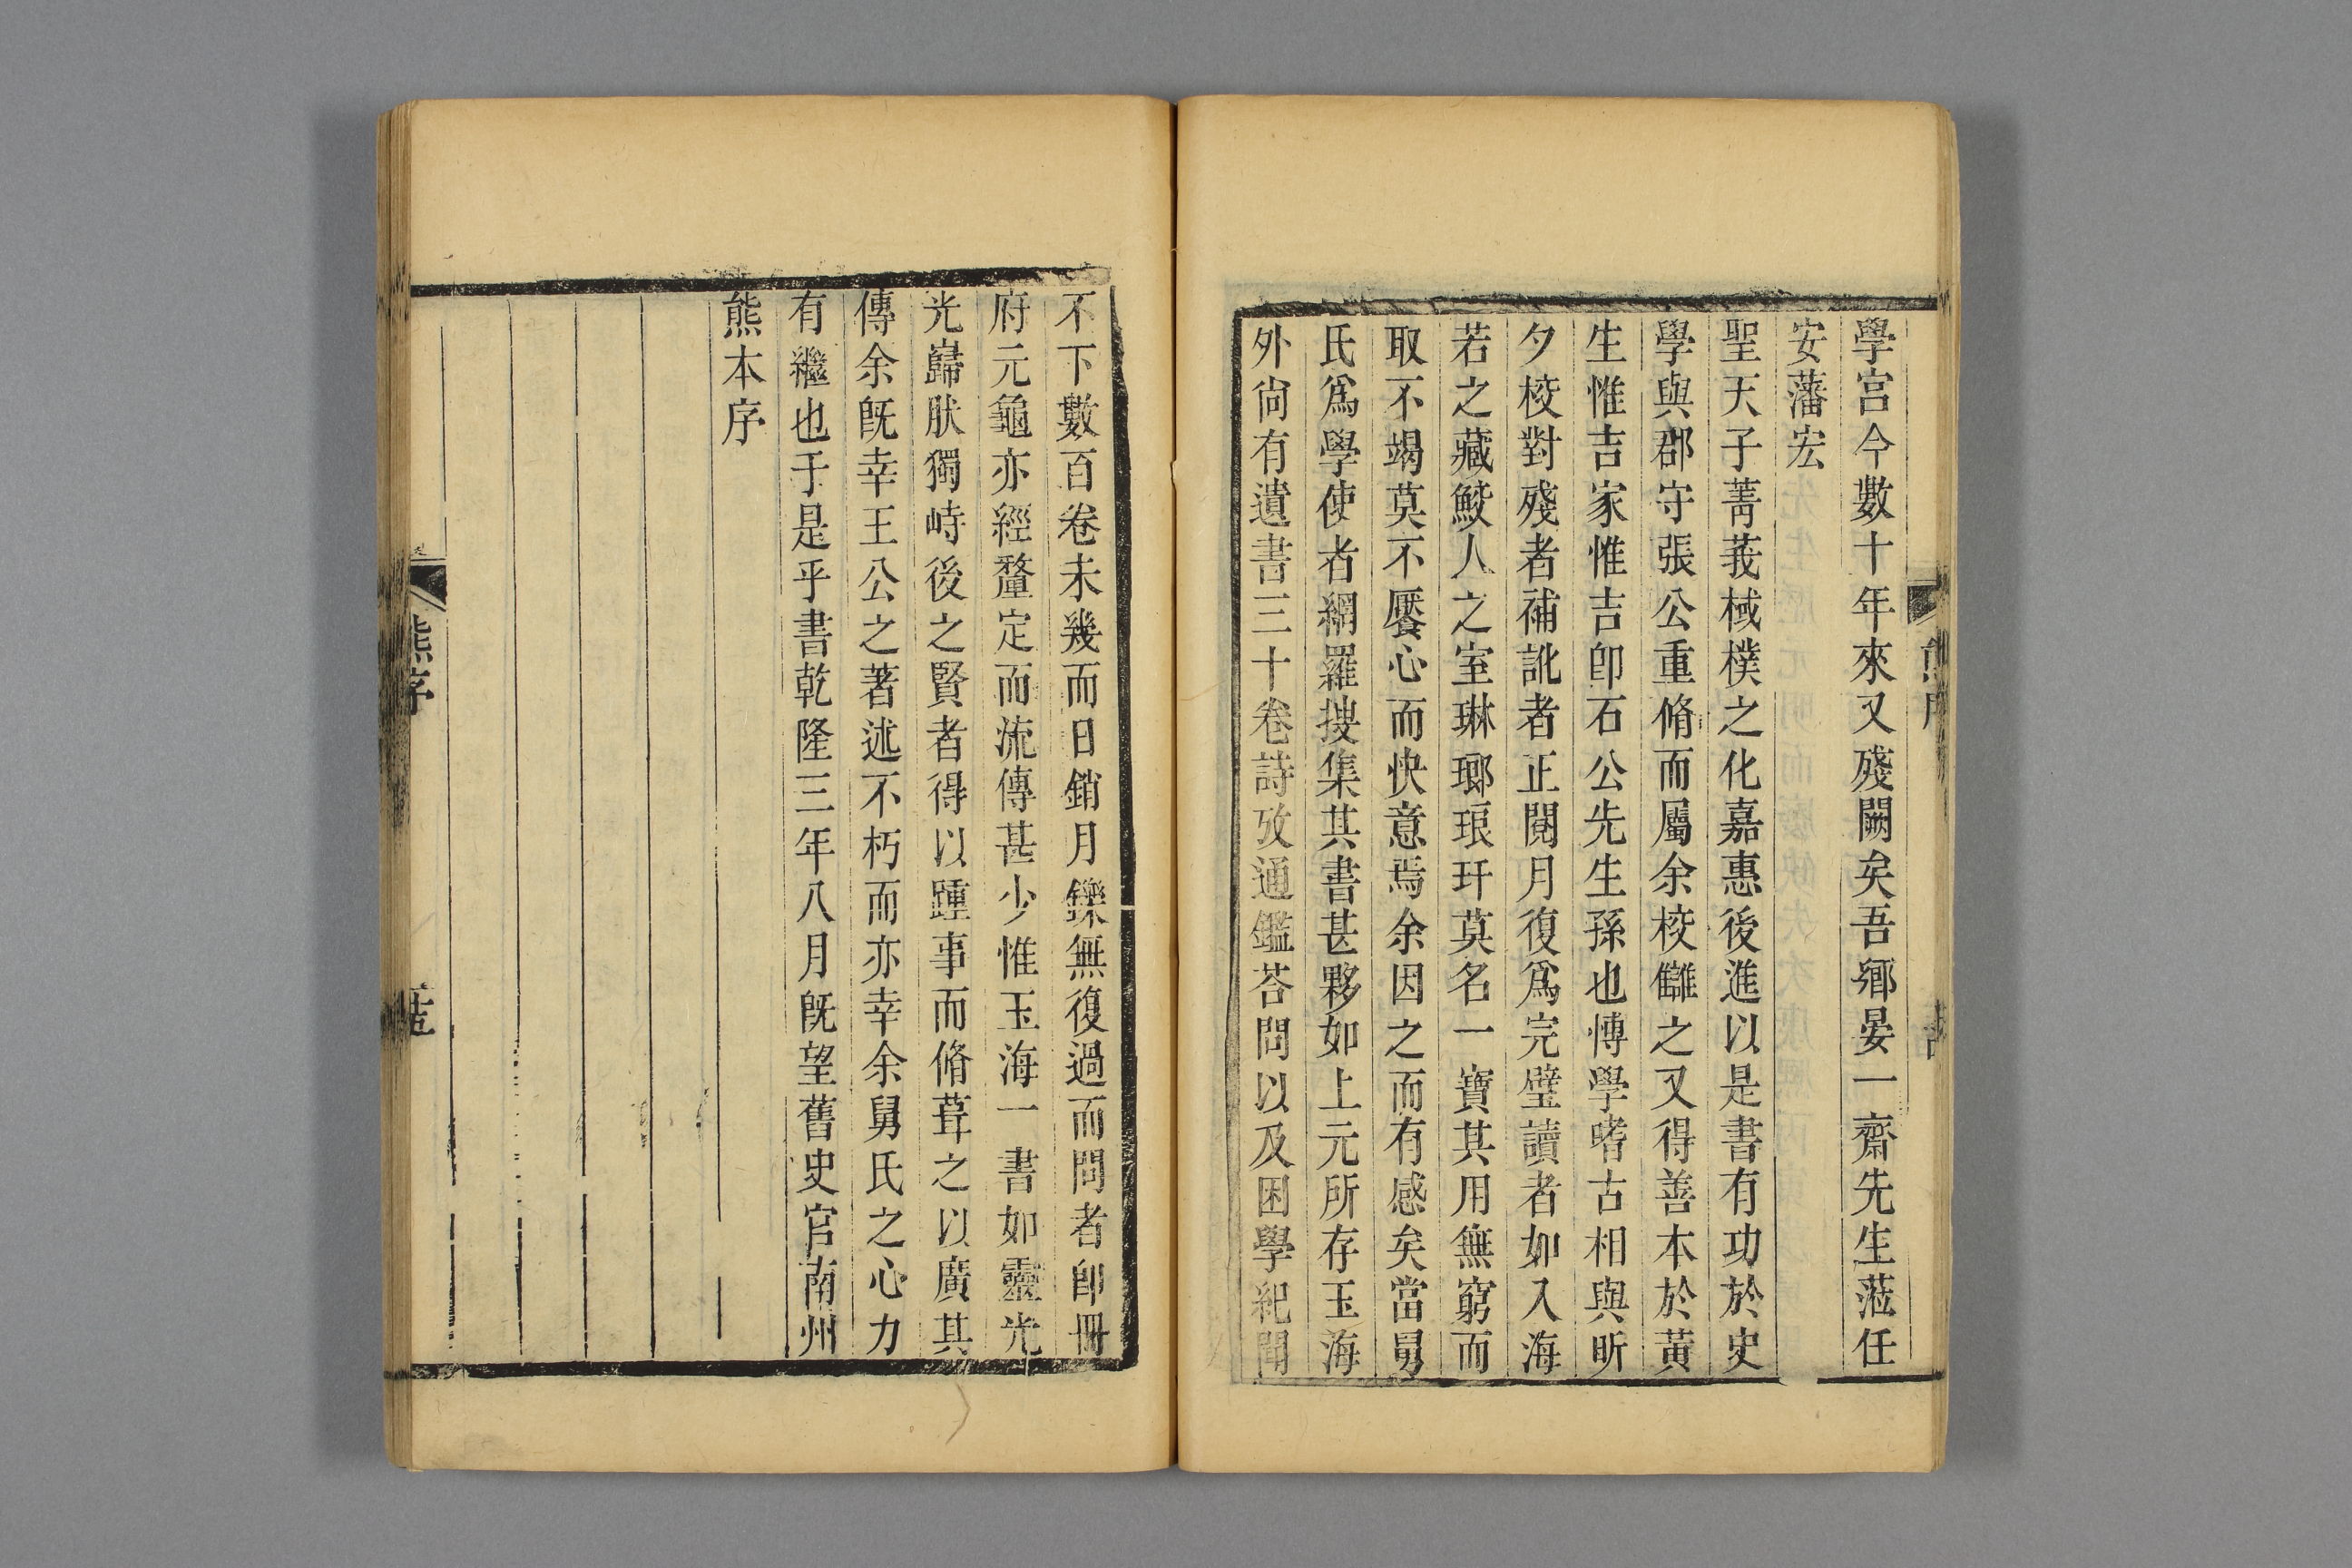 學宮今數十年來又殘闕矣吾鄉晏一齋先生蒞任
安藩宏
聖天子菁莪棫樸之化嘉惠後進以是書有功於史
學與郡守張公重脩而屬余校讎之又得善本於黃
生惟吉家惟吉卽石公先生孫也博學嗜古相與昕
夕校對殘者補訛者正閱月復爲完璧讀者如入海
若之藏鮫人之室琳瑯琅玕莫名一寶其用無窮而
取不竭莫不饜心而快意焉余因之而有感矣當舅
氏爲學使者網羅搜集其書甚夥如上元所存玉海
外尙有遺書三十卷詩攷通鑑荅問以及困學紀聞
不下數百卷未幾而日銷月鑠無復過而問者卽冊
府元龜亦經釐定而流傳甚少惟玉海一書如靈光
光巋肰獨峙後之賢者得以踵事而脩葺之以廣其
傳余旣幸王公之著述不朽而亦幸余舅氏之心力
有繼也于是乎書乾隆三年八月旣望舊史官南州
熊本序
熊序